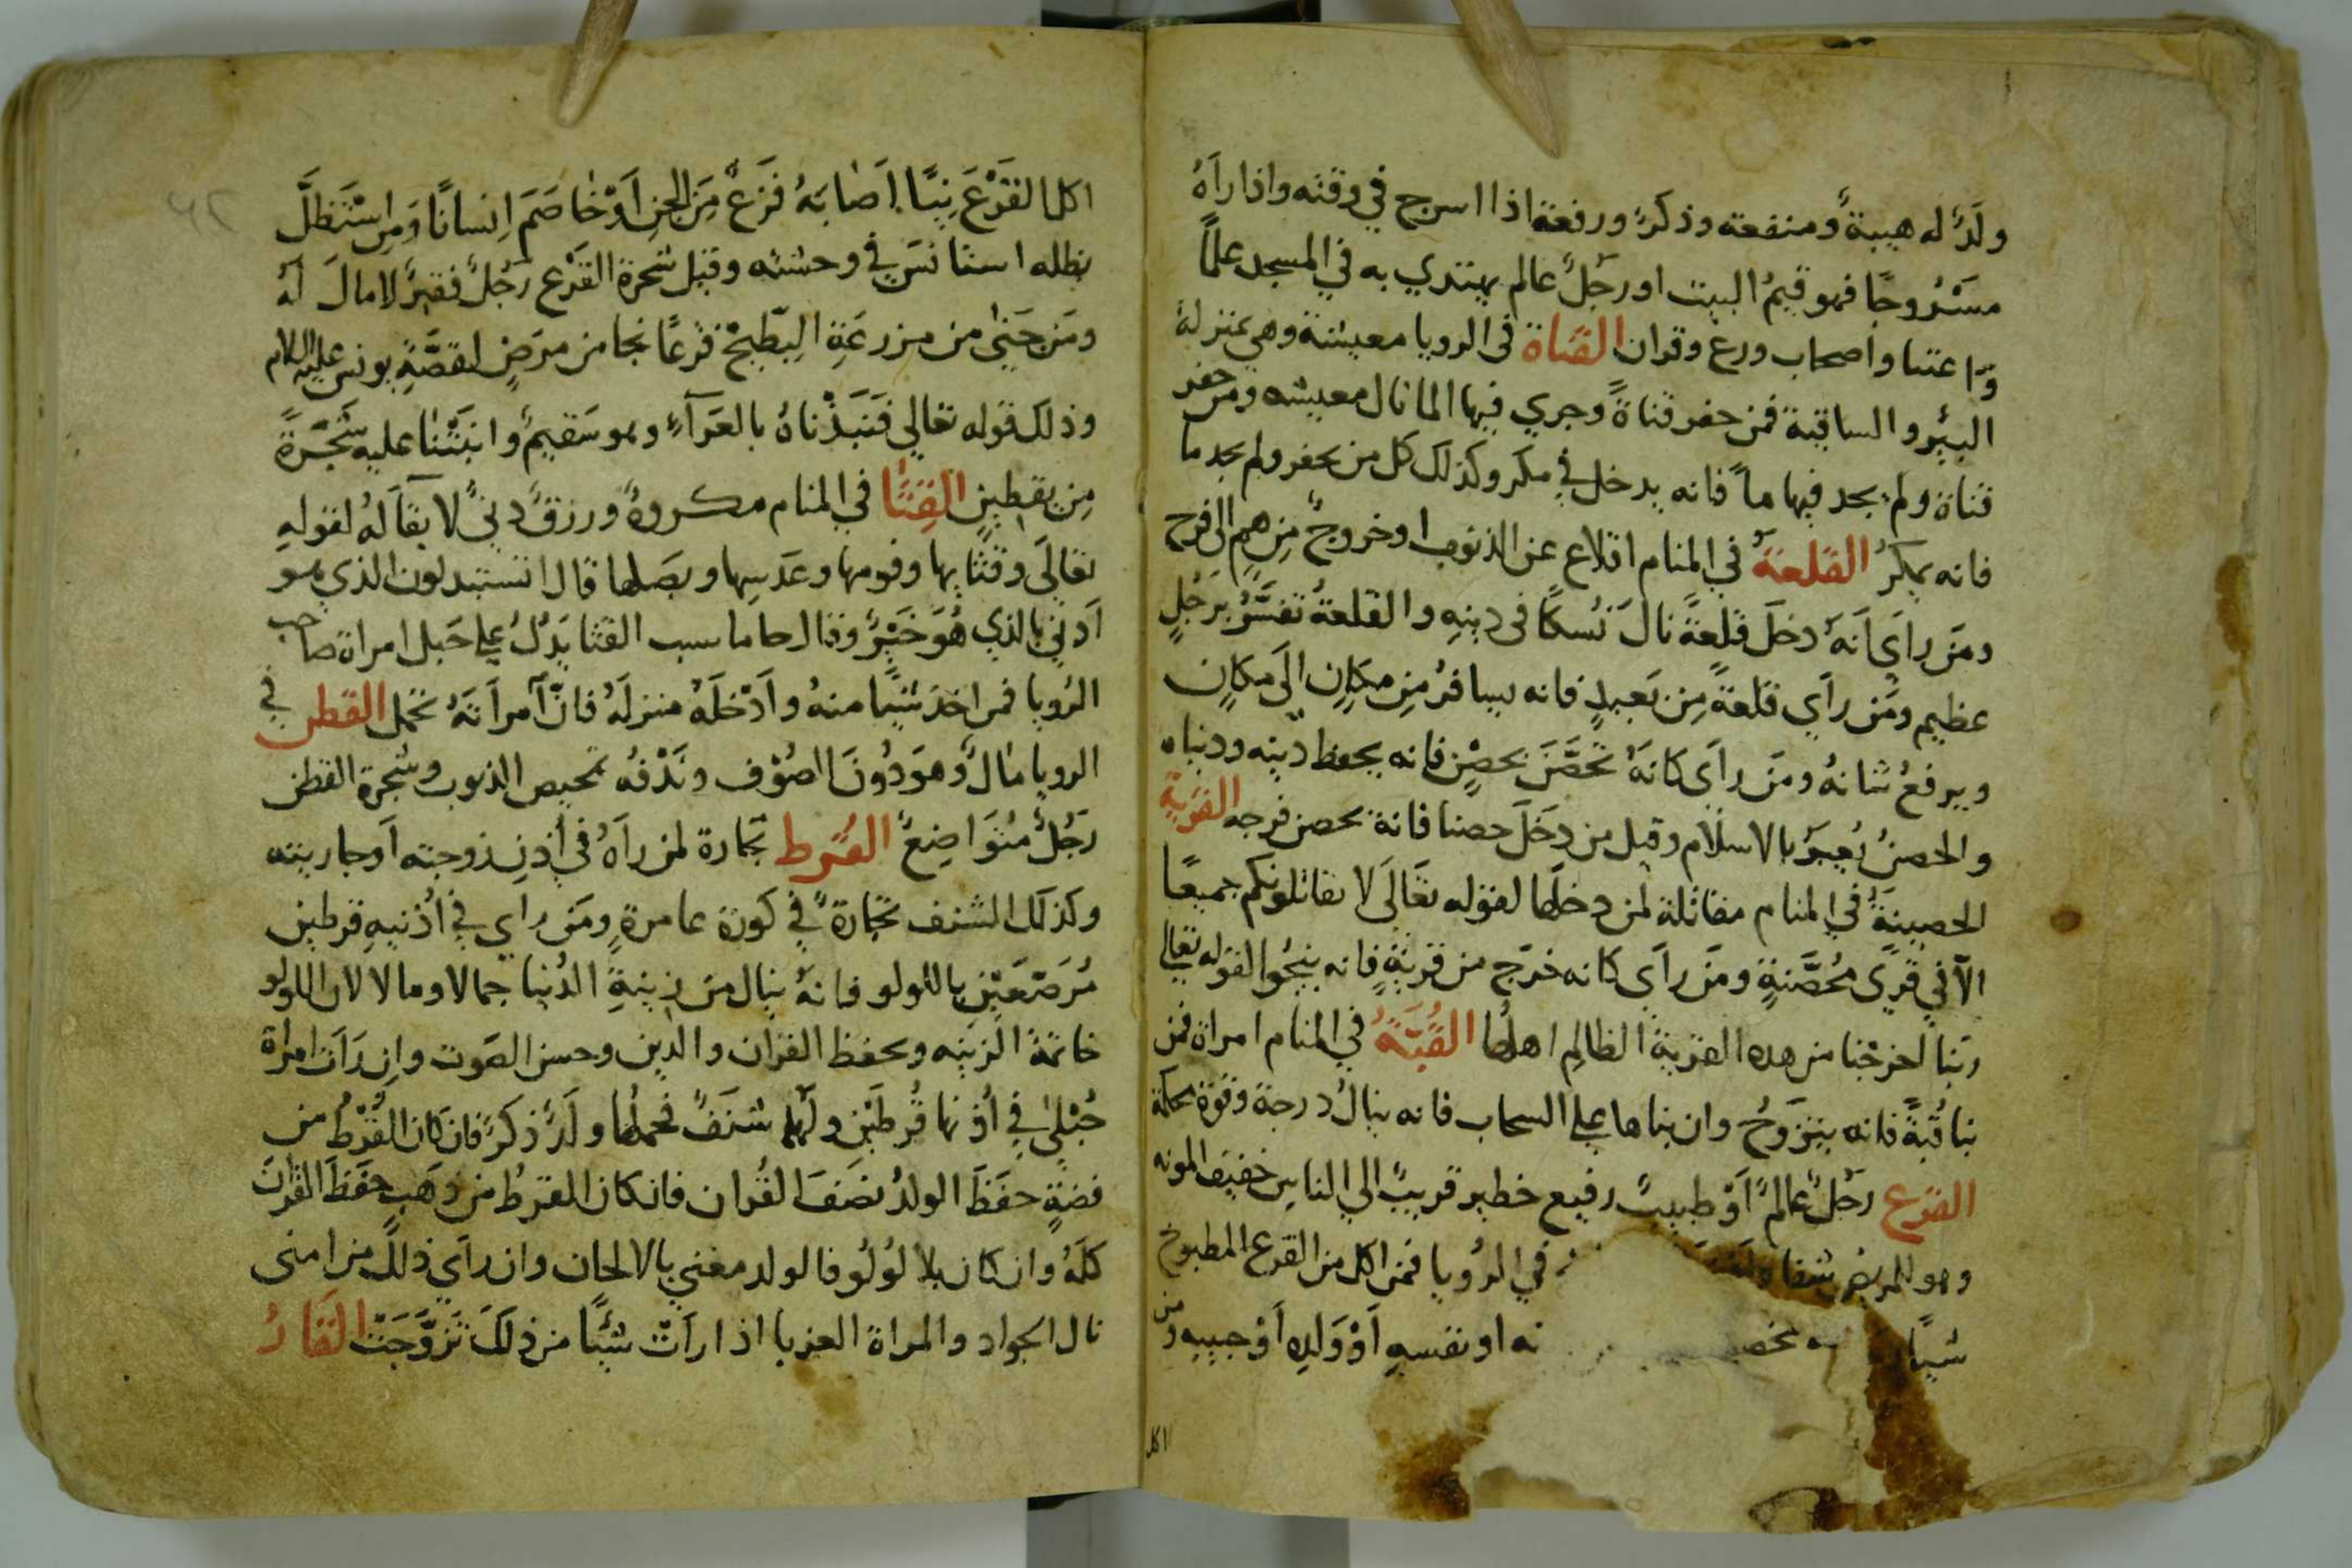 ولدٌ له هيبةٌ ومنفعته وذكرٌ ورفعة اذا اسرج في وقته واذا رآهُ
مسْروجًا فهو قيمُ البيت او رجلٌ عالم يهتدي به في المسجد علمًا
واعتنا واصحاب ورع وقران القناة في الرويا معيشة وهي بمنزلة
البئر والساقية فمن حفر قناةً وجري فيها الما نال معيشه ومن حفر
قناة ولم يجد فيها ماً فانه يدخل في مكر وكذلك كل من يحفر ولم يجد ما
فانه يمكرُ القلعةُ في المنام اقلاع عن الذنوب او خروجٌ مِن همٍ الى فرج
ومَن رأي اَنهَ دخلَ قلعةً نالَ نُسكًا فى دينهِ والقلعةُ تفسَّرُ برَجُلٍ
عظيم ومَن رأي قلعةً مِن بَعيدٍ فانه يسافرُ مِن مكانٍ الَى مكانٍ
ويرفعُ شانهُ ومَن رأى كانهَ تحصَّنَ بحصْنٍ فانه يحفظ دينه ودنياه
والحصنُ يُعبَرُ بالاسلام وقيل من دخَلَ حصنا فانه يحصن فرجه القَريةِ
الحصينَةُ في المنام مقاتلة لمن دخلها لقوله تعَالَى لا يقاتلونكم جميعًا
الاَّ في قرًى مُحصَّنةٍ ومَن رأَى كانه خرَج من قريَةٍ فانه ينجُوا لقوله تعالي
ربَنا اَخرجْنا من هده القرية الظالِم اهلُها القُبَّةُ في المنام امراة فمن
بنا قُبةً فانه يتزوجُ وان بناها علي السحاب فانه ينالُ درجة وقوة بحكمة
القرع رجُلٌ عالمٌ اَوْ طبيبٌ رفيع خطير قريبٌ الي الناس خفيف المونه
وهو للمريض شفا في الرُويا فمن اكل من القرع المطبوخ
شيًا نه او نفسهِ اَوْ وَلدِهِ اَوْ حبيبِهِ ومن
اكل
اكل القَرْعَ نِيًّا اَصابَهُ فَزعٌ مِنَ الجن اَوْ خاصَمَ اِنسانًا وَمن اسْتَظلَّ
بظله استانسَ في وحشته وقيل شجرة القَرْع رَجُلٌ فقيرٌ لا مالَ لهُ
ومَن جَنىٰ من مزرعَةِ البِطّيخْ قَرعًا نجا من مرَضٍ لقصَّةِ يونسَ عليه السلام
وذلك قوله تعالي فَنَبَذْناهُ بالعَرَآءِ وهو سَقيمٌ وانبَتْنا عليه شَجَرَةً
مِن يقطينٍ القِثَّا في المنام مكروهٌ ورزقٌ دنيٌّ لا بقاَ لهُ لقولهِ
تعَالَى وقثايها وفومها وعدَسِها وبصَلها قال اتستبدلون الذي هو
اَدني بالذي هُوَ خَيْرٌ وقال جاماسب القثا يَدُلُ علي حَبل امراة صاحب
الرُويا فمن اخذ شيًا منهُ واَدْخلَهُ منزلَهُ فانَّ آمراَتَهُ تحمل القطن في
الرويا مالٌ وهوَ دُونَ الصُوْف ونَدْفُه تمحيص الذنوب وشجرة القطن
رَجُلٌ مُتوَاضِعٌ القُرط تجارة لمن رآهُ في اُذنِ زوجته اَو جاريته
وكذلك الشنف تجارةٌ في كورة عامرةٍ ومَن رأي في اُذنيهِ قرطين
مُرَصَّعَيْنِ باللولو فانهُ ينال من زينةِ الدُنيا جمالا ومالا لان اللولو
خاتمة الزينه وبحفظ القران والدين وحسن الصَوت وان رَأت امراة
حُبْلىٰ في اُذنها قُرطَين ولَهما شنَفٌ فحملُها ولَدٌ ذكرٌ فان كان القُرْطُ من
فضةٍ حفَظَ الولدُ نصَفَ القُران فان كان القرطُ من ذَهَبٍ حفَظَ القرانَ
كلَهُ وان كان بلا لُولُو فالولد مغني بالالحان وان رأي ذلك من امنى
نال الجواد والمراة العزبا اذا رأتْ شيًا من ذلكَ تزوَّجَتْ القَارُ